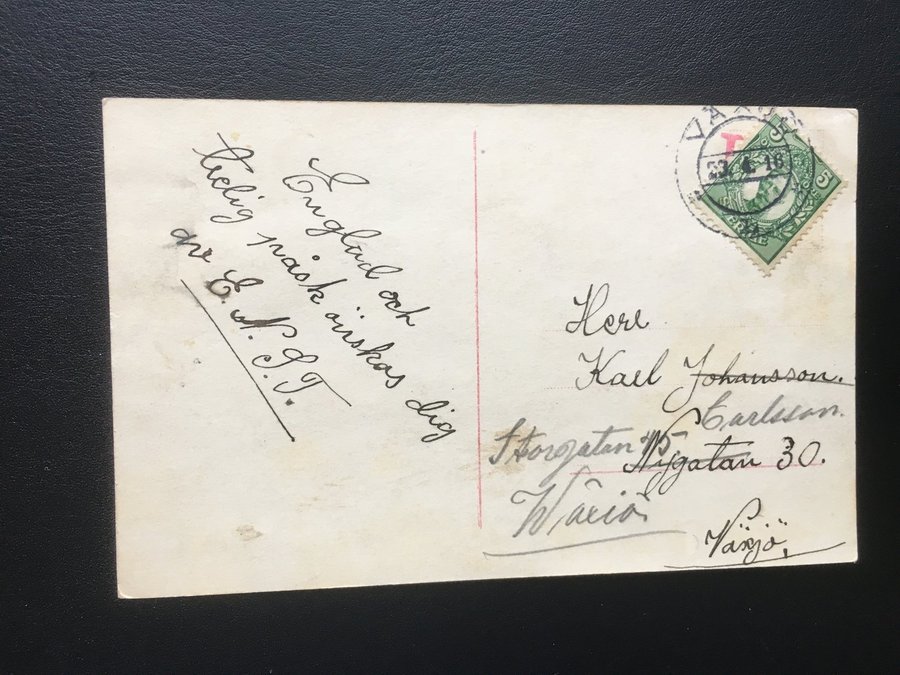 En glad och
trelig påsk önskas dig
av E. N. S. T.
VÄXJÖ
23. 4. 16
5
5
SVERIGE
Herr
Karl Johansson.
Carlsson.
Storgatan 45
Nygatan 30.
Växjö
Växjö,